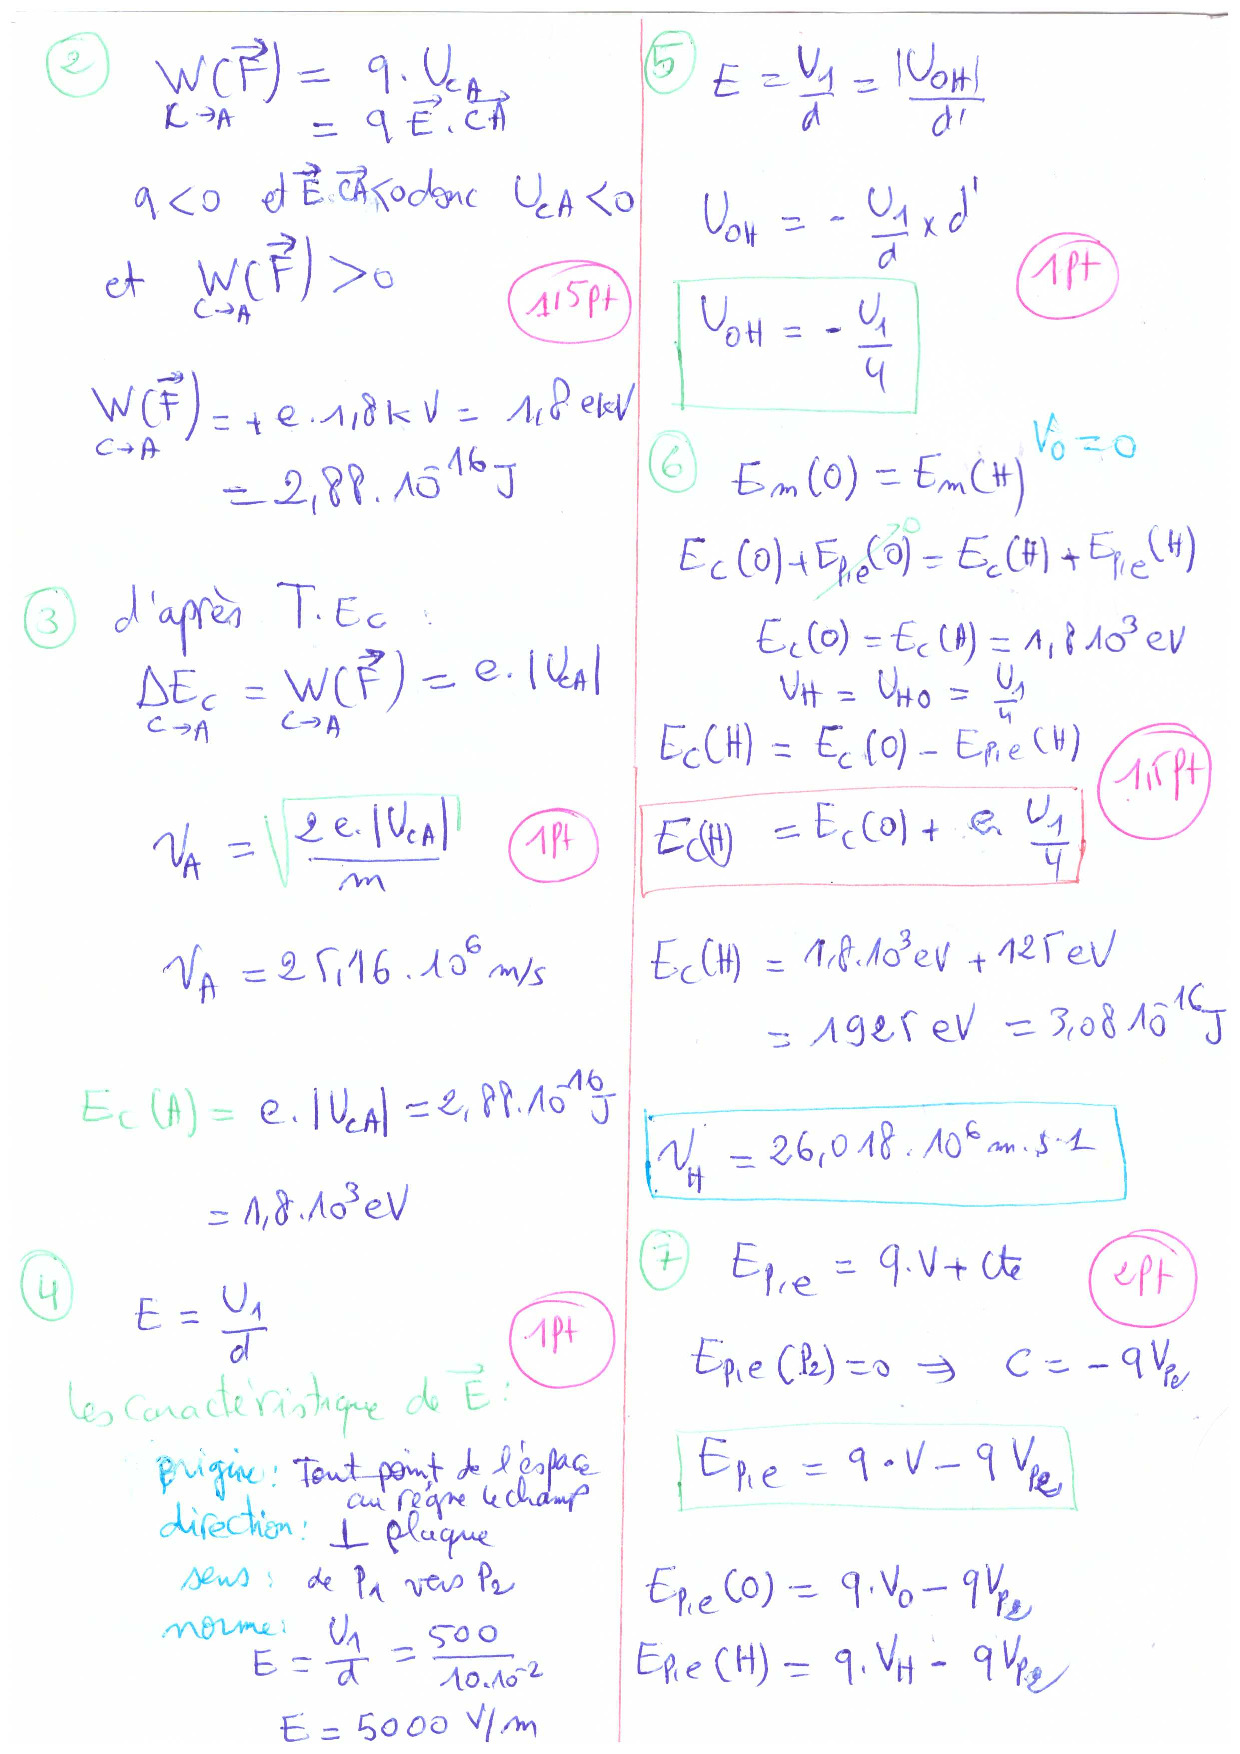 ②
W(F⃗) = q . U_CA
C→A = q E⃗ . CA⃗
q < 0 et E⃗.CA⃗<0 donc U_CA < 0
et W(F⃗) > 0
C→A
1,5pt
W(F⃗) = + e . 1,8 k V = 1,8 ekV
C→A
= 2,88 . 10⁻¹⁶ J
③ d'après T.Ec :
ΔEc = W(F⃗) = e . |U_CA|
C→A C→A
V_A = √(2 e . |U_CA| / m)
1pt
V_A = 25,16 . 10⁶ m/s
Ec(A) = e . |U_CA| = 2,88 . 10⁻¹⁶ J
= 1,8 . 10³ eV
④ E = U₁/d
1pt
Les caractéristique de E⃗ :
origine : Tout point de l'éspace
au règne le champ
direction : ⊥ plaque
sens : de P₁ vers P₂
norme :
E = U₁/d = 500/10.10⁻²
E = 5000 V/m
⑤ E = U₁/d = |U_OH|/d'
U_OH = - U₁/d x d'
1pt
U_OH = - U₁/4
⑥ V₀ = 0
Em(O) = Em(H)
Ec(O) + Ep,e(O) = Ec(H) + Ep,e(H)
0
Ec(O) = Ec(A) = 1,8 10³ eV
V_H = U_HO = U₁/4
Ec(H) = Ec(O) - Ep,e(H)
1,5pt
Ec(H) = Ec(O) + e U₁/4
Ec(H) = 1,8.10³ eV + 125 eV
= 1925 eV = 3,08 10⁻¹⁶ J
V_H = 26,018 . 10⁶ m.s-1
⑦ Ep,e = q.V + cte
2pt
Ep,e(P₂) = 0 ⇒ C = - qV_P₂
Ep,e = q . V - q V_P₂
Ep,e(O) = q . V₀ - qV_P₂
Ep,e(H) = q . V_H - qV_P₂